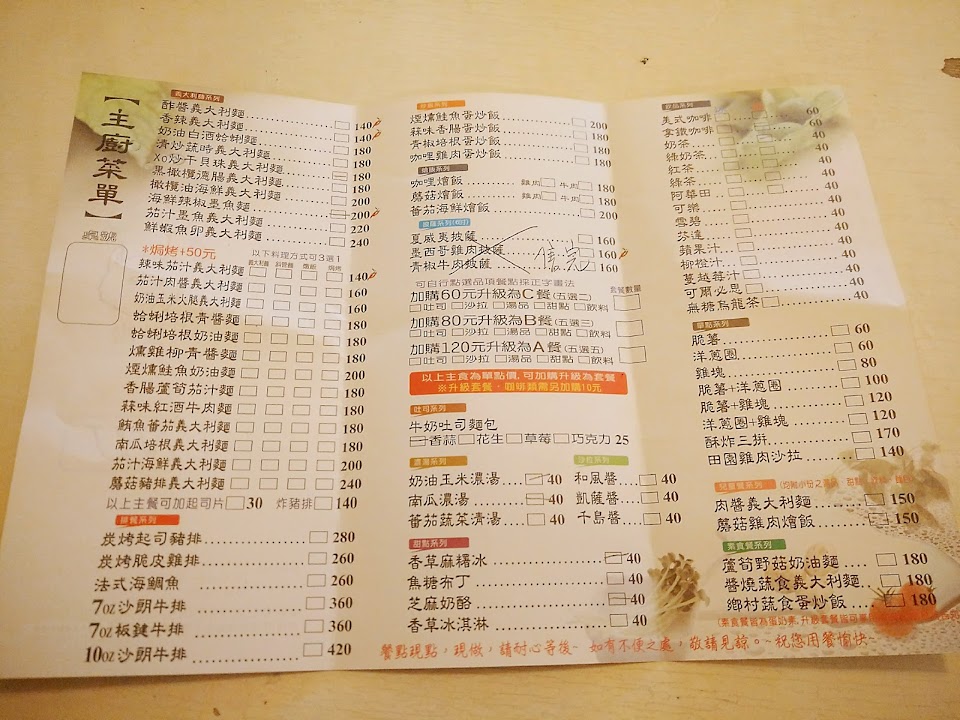 【主廚菜單】
桌號
義大利麵系列
酢醬義大利麵 140
香辣義大利麵 140
奶油白酒蛤蜊麵 180
清炒蔬時義大利麵 180
Xo炒干貝珠義大利麵 180
黑橄欖德腸義大利麵 180
橄欖油海鮮義大利麵 200
海鮮辣椒墨魚麵 200
茄汁墨魚義大利麵 220
鮮蝦魚卵義大利麵 240
*焗烤+50元 以下料理方式可3選1
義大利麵 斜管麵 燉飯 焗烤
辣味茄汁義大利麵 140
茄汁肉醬義大利麵 160
奶油玉米火腿義大利麵 160
蛤蜊培根青醬麵 180
蛤蜊培根奶油麵 180
燻雞柳青醬麵 180
煙燻鮭魚奶油麵 200
香腸蘆筍茄汁麵 180
蒜味紅酒牛肉麵 180
鮪魚番茄義大利麵 180
南瓜培根義大利麵 180
茄汁海鮮義大利麵 200
蘑菇豬排義大利麵 240
以上主餐可加起司片 30 炸豬排 140
排餐系列
炭烤起司豬排 280
炭烤脆皮雞排 260
法式海鯛魚 260
7oz沙朗牛排 360
7oz板鍵牛排 360
10oz沙朗牛排 420
炒飯系列
煙燻鮭魚蛋炒飯 200
蒜味香腸蛋炒飯 180
青椒培根蛋炒飯 180
咖哩雞肉蛋炒飯 180
燉飯系列
咖哩燴飯 雞肉 牛肉 180
蘑菇燴飯 雞肉 牛肉 180
番茄海鮮燴飯 200
夏威夷披薩 160
墨西哥雞肉披薩 160
青椒牛肉披薩 160
可自行點選品項餐點採正字畫法 套餐數量
加購60元升級為C餐(五選二)
吐司 沙拉 湯品 甜點 飲料
加購80元升級為B餐(五選三)
吐司 沙拉 湯品 甜點 飲料
加購120元升級為A餐(五選五)
吐司 沙拉 湯品 甜點 飲料
以上主食為單點價,可加購升級為套餐
※升級套餐,咖啡類需另加購10元
吐司系列
牛奶吐司麵包
香蒜 花生 草莓 巧克力 25
濃湯系列
奶油玉米濃湯 40
南瓜濃湯 40
番茄蔬菜清湯 40
沙拉系列
和風醬 40
凱薩醬 40
千島醬 40
甜點系列
香草麻糬冰 40
焦糖布丁 40
芝麻奶酪 40
香草冰淇淋 40
飲品系列
美式咖啡 60
拿鐵咖啡 60
奶茶 40
綠奶茶 40
紅茶 40
綠茶 40
阿華田 40
可樂 40
雪碧 40
芬達 40
蘋果汁 40
柳橙汁 40
蔓越莓汁 40
可爾必思 40
無糖烏龍茶 40
單點系列
脆薯 60
洋蔥圈 60
雞塊 80
脆薯+洋蔥圈 100
脆薯+雞塊 120
洋蔥圈+雞塊 120
酥炸三拼 170
田園雞肉沙拉 140
兒童餐系列
肉醬義大利麵 150
蘑菇雞肉燴飯 150
素食餐系列
蘆筍野菇奶油麵 180
醬燒蔬食義大利麵 180
鄉村蔬食蛋炒飯 180
餐點現點,現做,請耐心等後~ 如有不便之處,敬請見諒。~祝您用餐愉快~